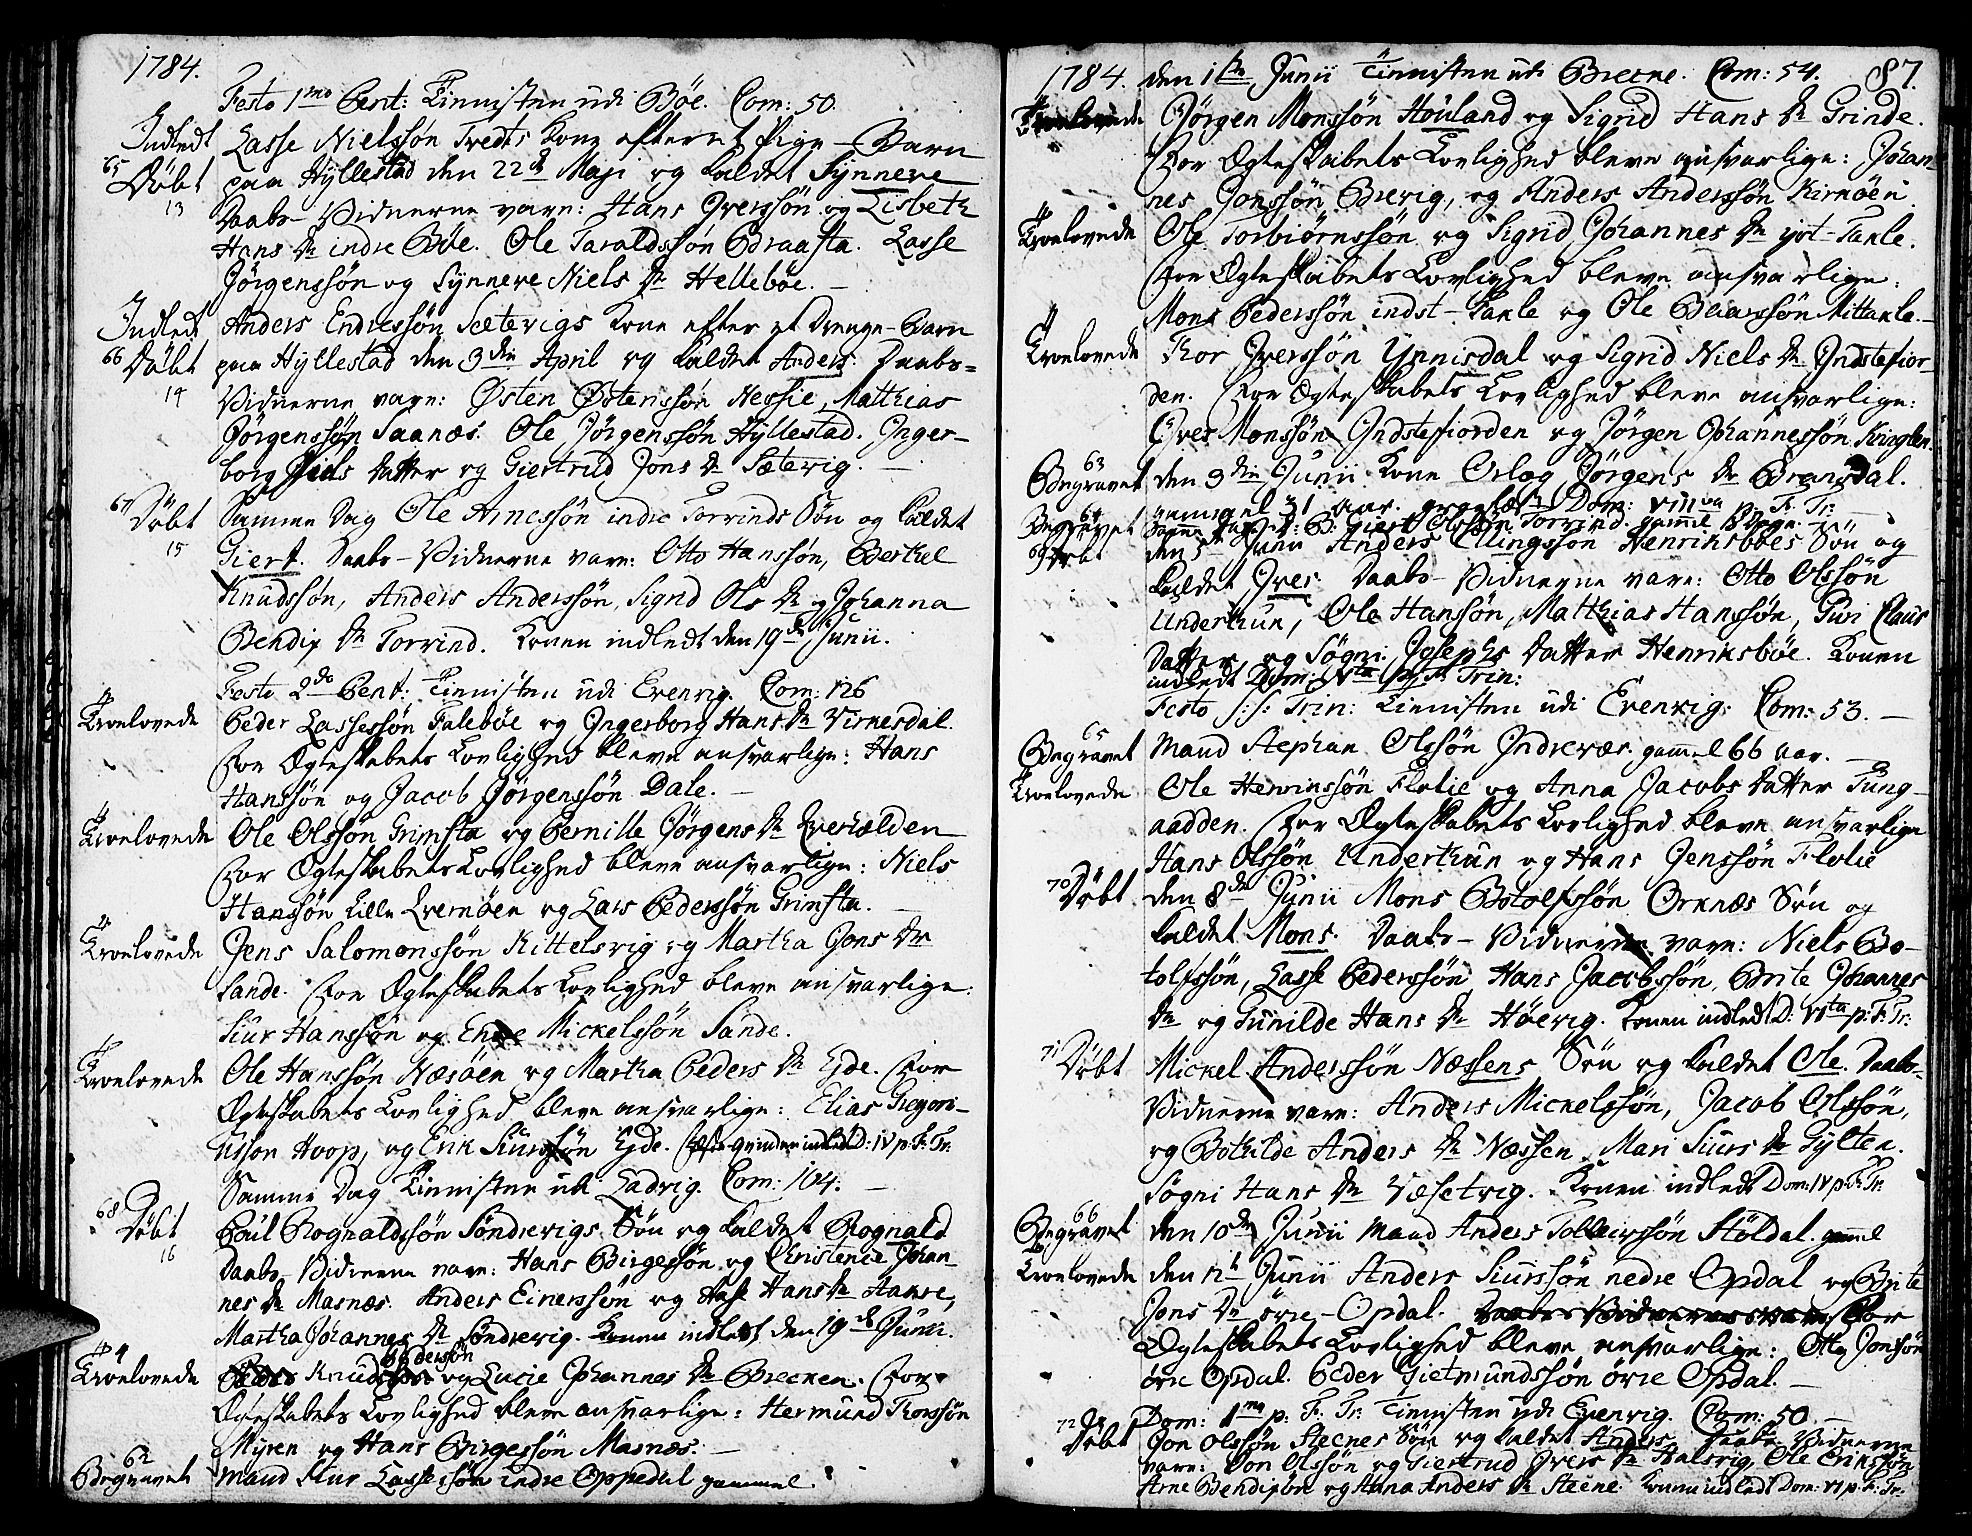 1784.
Festo 1mo Pent: Tienisten udi Böe. Com: 50.
Indledt Lasse Nielssön Tvedts Kone efter et Pige-Barn
65 Döbt paa Hyllestad den 22de Maji og kaldet Synneve
13 Daabs-Vidnerne vare: Hans Iverssön og Lisbeth
Hans Dr indre Böe. Ole Taraldssön Braasta. Lasse
Jörgenssön og Synneve Niels Dr Helleböe.
Indledt Anders Endressön Sætevigs Kone efter et Drenge-Barn
66 Döbt paa Hyllestad den 3die April og kaldet Anders. Daabs-
14 Vidnerne vare: Østen Østenssön Nessie, Matthias
Jörgenssön Saanæs. Ole Jörgenssön Hyllestad. Inger-
borg Datter og Giertrud Jons Dr Sætevig.
67 Döbt Samme Dag Ole Arnessön indre Torvinds Sön og kaldet
15 Giert. Daabs-Vidnerne vare: Otto Hanssön, Berthel
Knudssön, Anders Anderssön, Sigrid Ols Dr og Johanna
Bendix Dr Torvind. Konen indledt den 19de Junii.
Festo 2do Pent: Tienisten udi Evenvig. Com: 126
Troelovede Peder Lassessön Faleböe og Ingerborg Hans Dr Virkesdal.
For Ægteskabets Lovlighed bleve ansvarlige: Hans
Hanssön og Jacob Jörgenssön Dale.
Troelovede Ole Olssön Grimsta og Pernille Jörgens Dr
For Ægteskabets Lovlighed bleve ansvarlige: Niels
Hanssön Lille Qvernöen og Lars Pederssön Grimsta.
Troelovede Jens Salomonssön Kittelsvig og Martha Jons Dr
Sande. For Ægteskabets Lovlighed bleve ansvarlige:
Siur Hanssön og Mickelssön Sande.
Troelovede Ole Hanssön Næsöen og Martha Peders Dr Eide. For
Ægteskabets Lovlighed bleve ansvarlige: Elias Gregori-
usson Hoop, og Erik Siurssön Eide. indledt D: IV p: F: Tr.
Samme Dag Tienisten udi Ladvig. Com: 104.
68 Döbt Poul Rognaldssön Söndrevigs Sön og kaldet Rognald
16 Daabs-Vidnerne vare: Hans Birgessön og Christence Johan-
nes Dr Masnæs. Anders Einerssön og Aase Hans Dr
Martha Johannes Dr Söndrevig. Konen indledt den 19de Junii.
Troelovede Peder Knudssön Pederssön og Lucie Johannes Dr Brecken. For
Ægteskabets Lovlighed bleve ansvarlige: Hermund Thorssön
Myren og Hans Birgessön Masnæs.
62 Begravet Mand Siur Lassessön indre Oppedal gammel
1784. den 1ste Junii Tienisten udi Brecke. Com: 54. 87.
Troelovede Jörgen Monssön Höuland og Sigrid Hans Dr Grinde.
For Ægteskabets Lovlighed bleve ansvarlige: Johan-
nes Jonssön Brevig, og Anders Anderssön Kirnöen.
Troelovede Ole Torbiörnssön og Sigrid Johannes Dr yst-Takle.
For Ægteskabets Lovlighed bleve ansvarlige:
Mons Pederssön indst-Takle og Ole Baarssön Mittakle.
Troelovede Thor Iverssön Ynnisdal og Sigrid Niels Dr Indstefior-
den. For Ægteskabets Lovlighed bleve ansvarlige:
Iver Monssön Indstefiorden og Jörgen Johannessön
63 Begravet den 3die Junii Kone Orlog Jörgens Dr Brensdal.
gammel 31 aar. Dom: VIII p. F. Tr.
64 Begravet Samme Dag Giert Olssön Torvind. gammel Dage.
69 Döbt den 5te Junii Anders Ellingssön Henriksböes Sön og
kaldet Iver. Daabs-Vidnerne vare: Otto Olssön
Underthun, Ole Hanssön, Matthias Hanssön, Guri Claus
Datter og Sögni Josephs Datter Henriksböe. Konen
indledt Dom: p. F. Trin:
Festo S:S: Trin: Tienisten udi Evenvig: Com: 53.
65 Begravet Mand Stephan Olssön Indrevær gammel 66 aar.
Troelovede Ole Henrikssön Flolie og Anna Jacobs Datter Tung-
aadden. For Ægteskabets Lovlighed bleve ansvarlige
Hans Olssön Underthun og Hans Jenssön Flolie
70 Döbt den 8de Junii Mons Botolfssön Orknæs Sön og
kaldet Mons. Daabs-Vidnerne vare: Niels Bo-
tolfssön, Lasse Pederssön Hans Jacobssön, Brite Johannes
Dr og Gunilde Hans Dr Höevig. Konen indledt D. VIta p: F: Tr:
71 Döbt Mickel Anderssön Næssens Sön og kaldet Ole. Daabs-
Vidnerne vare: Anders Mickelssön, Jacob Olssön,
og Bothilde Anders Dr Næssen, Mari Siurs Dr Gylten.
Sögni Hans Dr Væsetvig. Konen indledt Dom: IV p: F: Tr:
66 Begravet den 10de Junii Mand Anders Tolleivssön Stöldal. gammel
Troelovede den 12te Junii Anders Siurssön nedre Opdal og Brite
Jons Dr övre-Opdal. Daabs-Vidnerne vare. For
Ægteskabets Lovlighed bleve ansvarlige: Otto Jonssön
övre Opdal. Peder Gietmundssön övre Opdal.
Dom: 1ma p: F: Tr: Tienisten udi Evenvig. Com: 50.
72 Döbt Jon Olssön Steenes Sön og kaldet Anders. Daabs-Vidnerne
vare: Jon Olssön og Giertrud Ivers Dr Halsvig, Ole Erikssön
Arne Bendixön og Anna Anders Dr Steene. Konen indledt Dom: VI p: F: Tr: